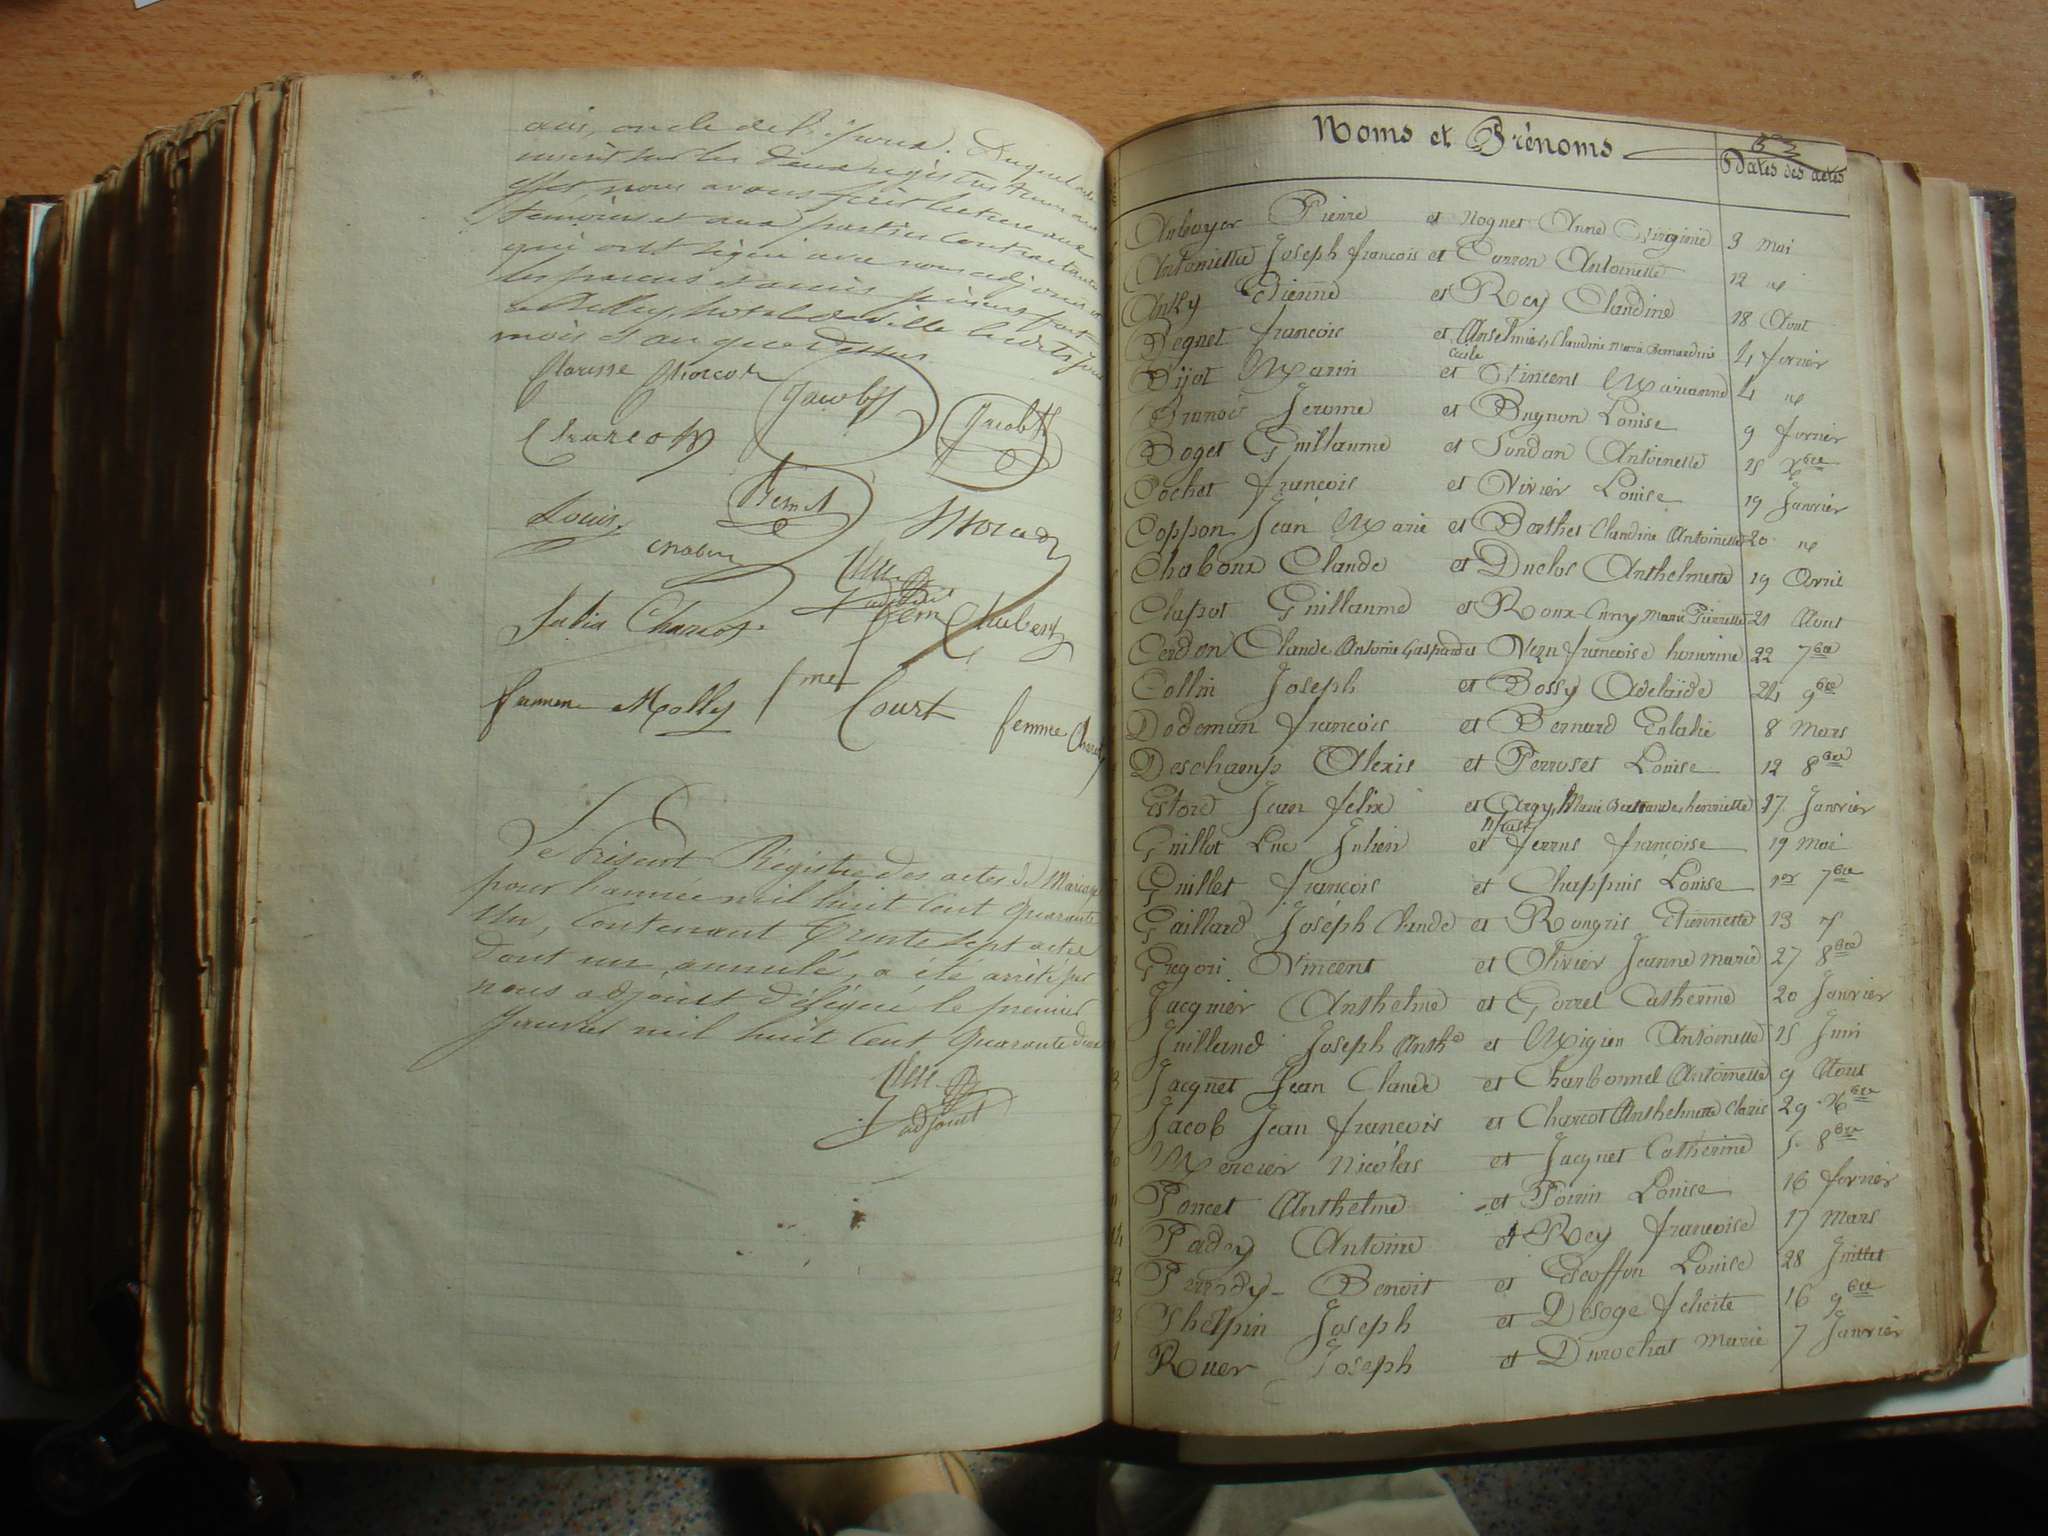 amis, oncle de l'époux. Duquel acte
inscrit sur les deux registres tenus aux
effet nous avons fait lecture aux
témoins et aux parties contractantes
qui ont signé avec nous adjoint et
les parens et amis présens fait
à Belley, hôtel de ville les dits jour
mois et an que dessus
Clarisse Charcot
Jacob
Jacob
Charcot
Louis
Julia Charcot
femme Molly
Court
femme
Le Présent Régistre des actes de Mariage
pour l'année mil huit cent quarante
Un, contenant Trente sept actes
dont un annulé, a été arrêté par
nous adjoint délégué le premier
Janvier mil huit cent quarante deux
adjoint
Noms et Prénoms
Dates des actes
Pierre et Noguet Anne Virginie 3 Mai
Antoniette Joseph françois et Carron Antoinette 12 id
Anky Etienne et Rey Claudine 18 Aout
Beguet françois et Anselmier, Claudine Marie Bernardine 4 fevrier
Bijot Marin et Vincent Marianne 4 id
Brunois Jerome et Bugnon Louise 9 fevrier
Boget Guillaume et Sundan Antoinette 15 Xbre
Cochet françois et Vivier Louise 19 Janvier
Coppon Jean Marie et Berthet Claudine Antoinette 20 id
Chaboux Claude et Duclos Anthelmette 19 Avril
Clapot Guillaume et Roux-Curny Marie Pierrette 21 Aout
Cerdon Claude Antoine Gaspard et Vezu françoise honorine 22 7bre
Collin Joseph et Bossy Adelaïde 24 9bre
Dodeman françois et Bernard Eulalie 8 Mars
Deschamps Alexis et Perruset Louise 12 8bre
Estord Jean felix et Cirgy, Marie Bertrande henriette 27 Janvier
Guillot Luc Julien et ferrus françoise 19 Mai
Guillet françois et Chappuis Louise 1er 7bre
Gaillard Joseph Claude et Rougris Etiennette 13 id
Gregori Vincent et Olivier Jeanne Marie 27 8bre
Jacquier Anthelme et Gorrel Catherine 20 Janvier
Juilland Joseph Anthe et Migieu Antoinette 15 Juin
Jacquet Jean Claude et Charbonnel Antoinette 9 Aout
Jacob Jean françois et Charcot Anthelmette Claris 29 Xbre
Mercier Nicolas et Jacquet Catherine 5 8bre
Poncet Anthelme et Poirin Louise 16 fevrier
Padey Antoine et Rey françoise 17 Mars
Perrody Benoit et Escoffon Louise 28 Juillet
Phelpin Joseph et Desoge felicité 16 9bre
Ruer Joseph et Durochat Marie 7 Janvier